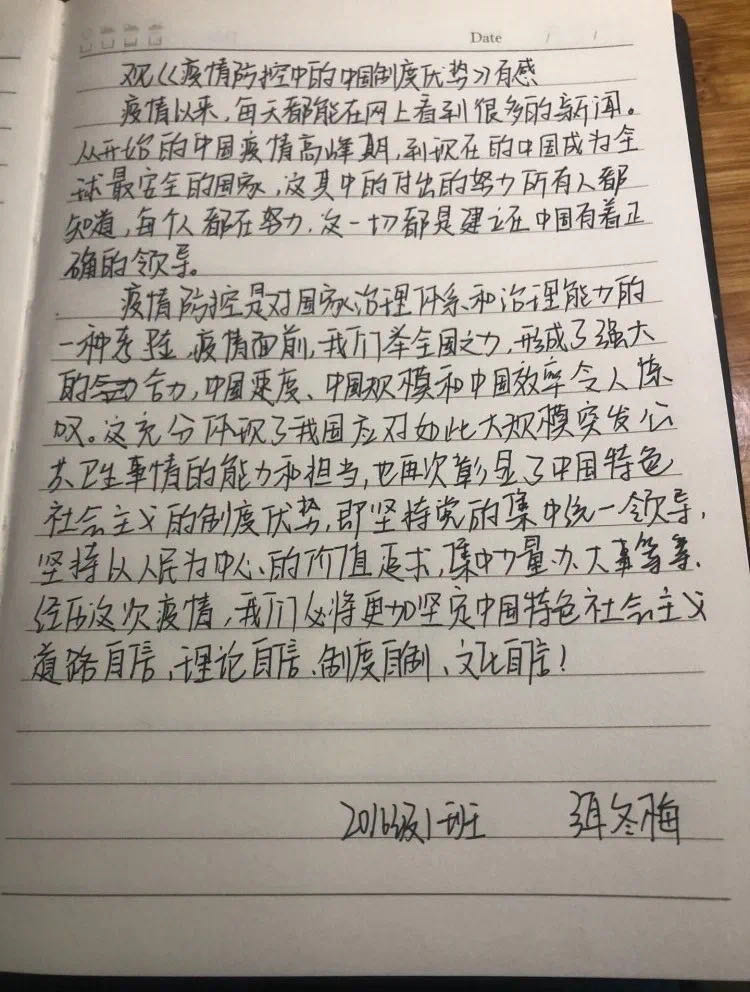 Date / /
观《疫情防控中的中国制度优势》有感
疫情以来，每天都能在网上看到很多的新闻。
从开始的中国疫情高峰期，到现在的中国成为全
球最安全的国家，这其中的付出的努力所有人都
知道，每个人都在努力．这一切都是建立在中国有着正
确的领导。
疫情防控是对国家治理体系和治理能力的
一种考验，疫情面前，我们举全国之力，形成了强大
的合力，中国速度、中国规模和中国效率令人惊
叹。这充分体现了我国应对如此大规模突发公
共卫生事情的能力和担当，也再次彰显了中国特色
社会主义的制度优势，即坚持党的集中统一领导，
坚持以人民为中心的价值追求，集中力量办大事等等．
经历这次疫情，我们必将更加坚定中国特色社会主义
道路自信、理论自信、制度自制、文化自信！
2016级1班 冬梅